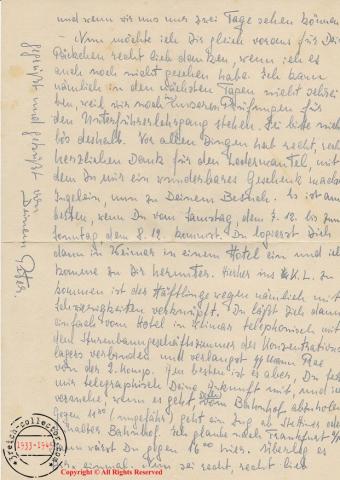 und wenn wir uns nur zwei Tage sehen können.
– Nun möchte ich Dir gleich voraus für Dein
Päckchen recht lieb danken, wenn ich es
auch noch nicht gesehen habe. Ich kann
nämlich in den nächsten Tagen nicht schrei-
ben, weil wir noch unseren Prüfungen für
den Unterführerlehrgang stehen. Sei bitte nicht
bös deshalb. Vor allen Dingen hab recht, recht
herzlichen Dank für den Ledermantel, mit
dem Du mir ein wunderbares Geschenk machst.
Ingelein, nun zu Deinem Besuch. Es ist am
besten, wenn Du vom Samstag, dem 7.12. bis zum
Sonntag, dem 8.12. kommst. Du logierst Dich
dann in Weimar in einem Hotel ein und ich
komme zu Dir herunter. Hierher ins K.L. zu
kommen ist der Häftlinge wegen nämlich mit
Schwierigkeiten verknüpft. Du läßt Dich dann
einfach vom Hotel in Weimar telephonisch mit
dem Sturmbanngeschäftszimmer des Konzentrations-
lagers verbinden und verlangst SS Mann
von der 2. Komp. Am besten ist es aber, Du
mir telegraphisch Deine Ankunft mit, und ich
versuche, wenn es geht, Dich vom Bahnhof abzuholen.
Gegen 11 30 (ungefähr) geht ein Zug ab Stettiner oder
Anhalter Bahnhof. Ich glaube nach Frankfurt
dann wärst Du gegen 16 00 hier. Überleg es
Dir einmal. Nun sei recht, recht lieb
gegrüßt und geküßt von
Deinem Peter.
3reich-collector.com
1933-1945
Copyright © All Rights Reserved